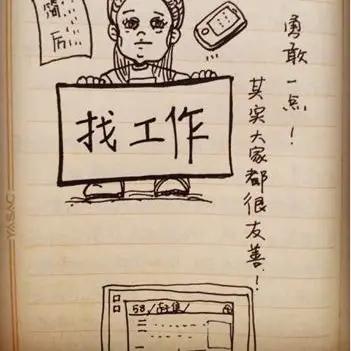 简
历
找工作
勇敢一点！
其实大家都很友善！
58/赶集/
YASAC